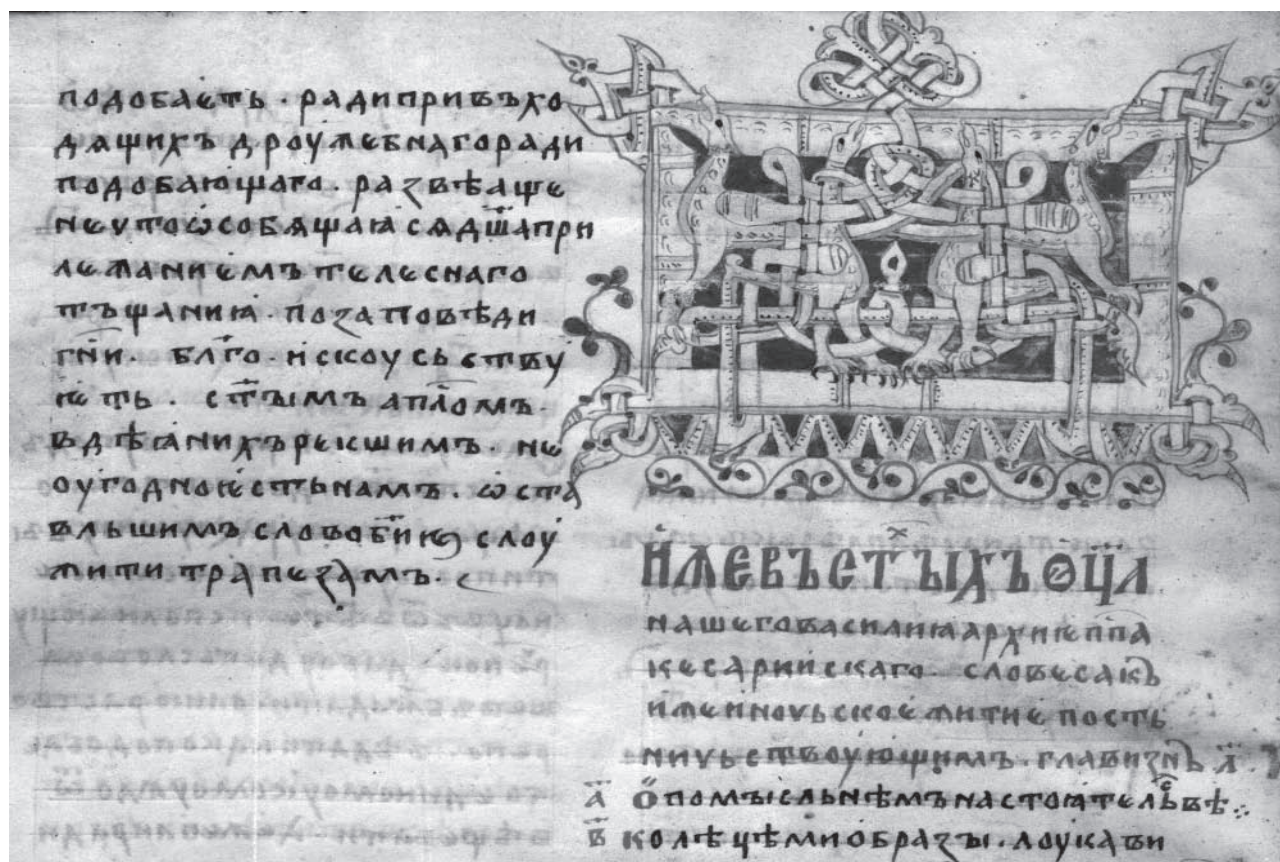 подобаѥть · ради привъхо
дѧщихъ дроужебнаго ради
подобающаго · развѣ аще
не что ѡсобѧщаꙗ сѧ дш҃а при
лежаниѥмъ телеснаго
тъщаниꙗ · по заповѣди
гн҃и · бл҃го · искоусьствꙋ
ѥть · ст҃ымъ апл҃омъ ·
в дѣꙗнихъ рекшимъ · не
оугодно ѥсть намъ · ѡста
вльшимъ слово б҃иѥ слоу
жити трапезамъ ·
иже въ ст҃ыхъ ѡц҃а
нашего василиꙗ архиѥпп҃а
кесарийскаго · словеса къ
иже иночьское житие пость
ничьствоующимъ · главизнъ
а҃ ѡ помысльнѣмъ настоꙗтельс҃вѣ
в҃ колѣцѣми образы · лоукави